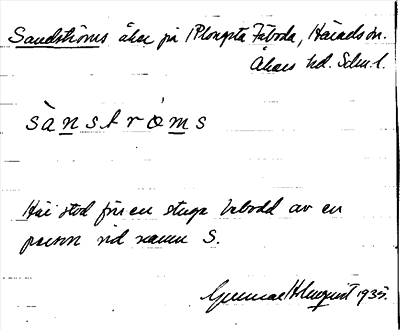 Sandströms åker på Plongsta Fäboda, Häradsön.
Åkers hd. Sdm. l.
sànstróms
Här stod förr en stuga bebodd av en
person vid namn S.
Gunnar Holmquist 1935.